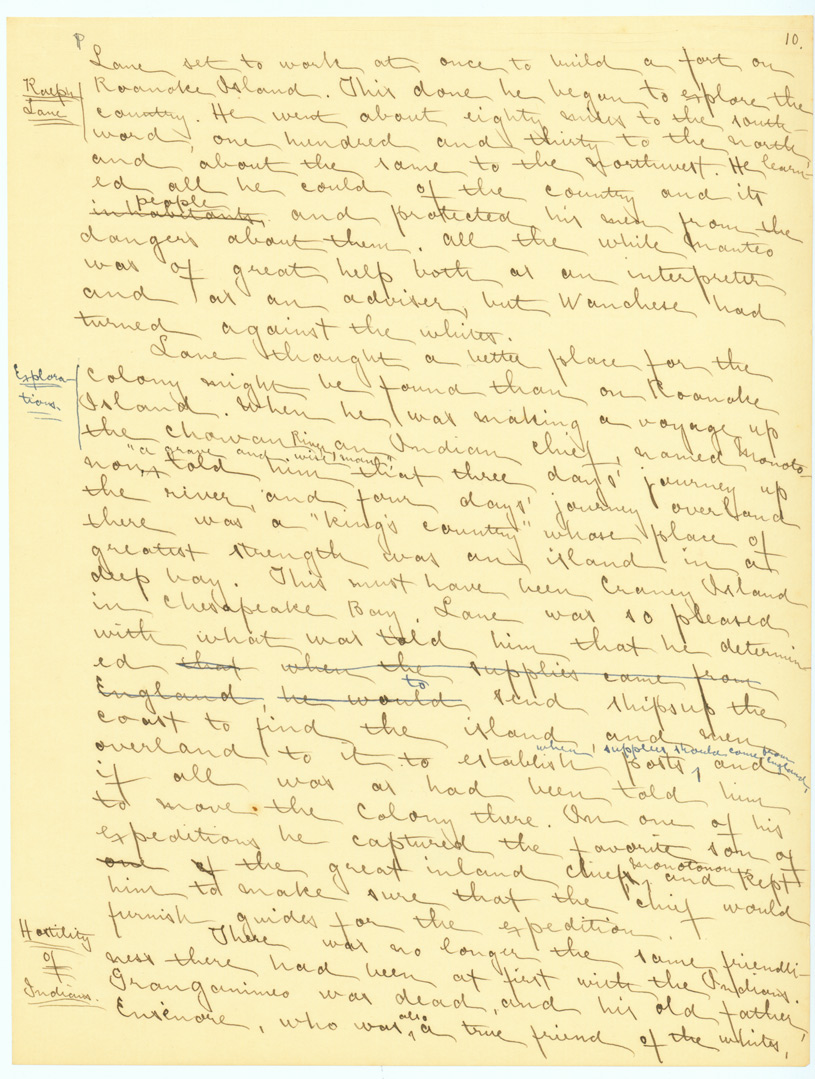 10.
P Lane set to work at once to build a fort on
Ralph
Lane
Roanoke Island. This done he began to explore the
country. He went about eighty miles to the south-
ward, one hundred and thirty to the north,
and about the same to the northwest. He learn-
ed all he could of the country and its
people
inhabitants, and protected his men from the
dangers about them. All the while Manteo
was of great help both as an interpreter
and as an adviser, but Wanchese had
turned against the whites.
Explora-
tions.
Lane thought a better place for the
colony might be found than on Roanoke
Island. When he was making a voyage up
the Chowan River, an Indian chief, named Monoto-
"a grave and wise man,"
non, told him that three days' journey up
the river, and four days' journey overland
there was a "king's country" whose place of
greatest strength was an island in a
deep bay. This must have been Craney Island
in Chesapeake Bay. Lane was so pleased
with what was told him that he determin-
ed that when the supplies came from
England, he would to send ships up the
coast to find the island and men
when supplies should come from England,
overland to it to establish posts, and
if all was as had been told him
to move the colony there. On one of his
expeditions he captured the favorite son of
one of the great inland chiefs, Monotonon, and kept
him to make sure that the chief would
furnish guides for the expedition.
Hostility
of
Indians.
There was no longer the same friendli-
ness there had been at first with the Indians.
Granganimeo was dead, and his old father,
Ensenore, who was also a true friend of the whites,